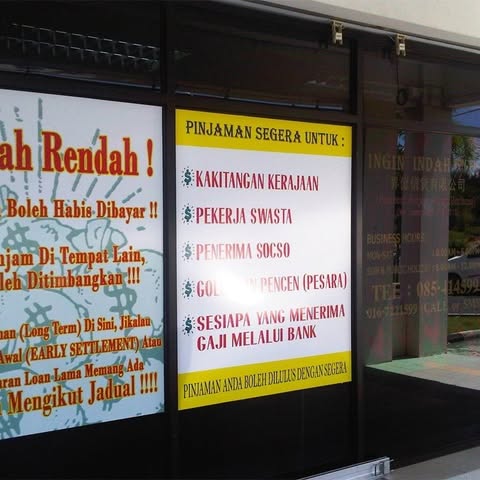 ah Rendah !
Boleh Habis Dibayar !!
njam Di Tempat Lain,
leh Ditimbangkan !!!
nan (Long Term) Di Sini, Jikalau
Awal (EARLY SETTLEMENT) Atau
ran Loan Lama Memang Ada
Mengikut Jadual !!!!
PINJAMAN SEGERA UNTUK :
$ KAKITANGAN KERAJAAN
$ PEKERJA SWASTA
$ PENERIMA SOCSO
$ GOL PENCEN (PESARA)
$ SESIAPA YANG MENERIMA
GAJI MELALUI BANK
PINJAMAN ANDA BOLEH DILULUS DENGAN SEGERA
INGIN INDAH
BUSINESS HOURS